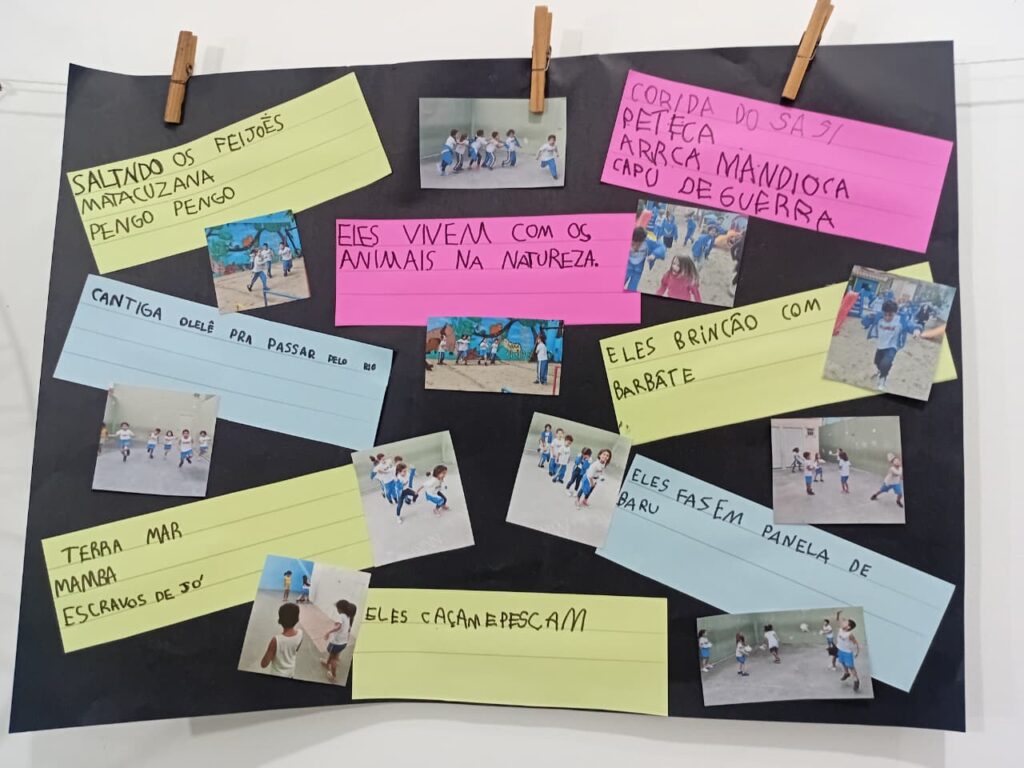 SALTNDO OS FEIJOẼS
MATACUZANA
PENGO PENGO
CORIDA DO SA
PETECA
ARRCA MANDIOCA
CAPU DE GUERRA
ELES VIVEM COM OS
ANIMAIS NA NATUREZA.
CANTIGA OLELÊ PRA PASSAR PELO RIO
ELES BRINCÃO COM
BARBÂTE
TERRA MAR
MAMBA
ESCRAVOS DE JÓ
ELES FASEM PANELA DE
BARU
ELES CAÇAM E PESCAM